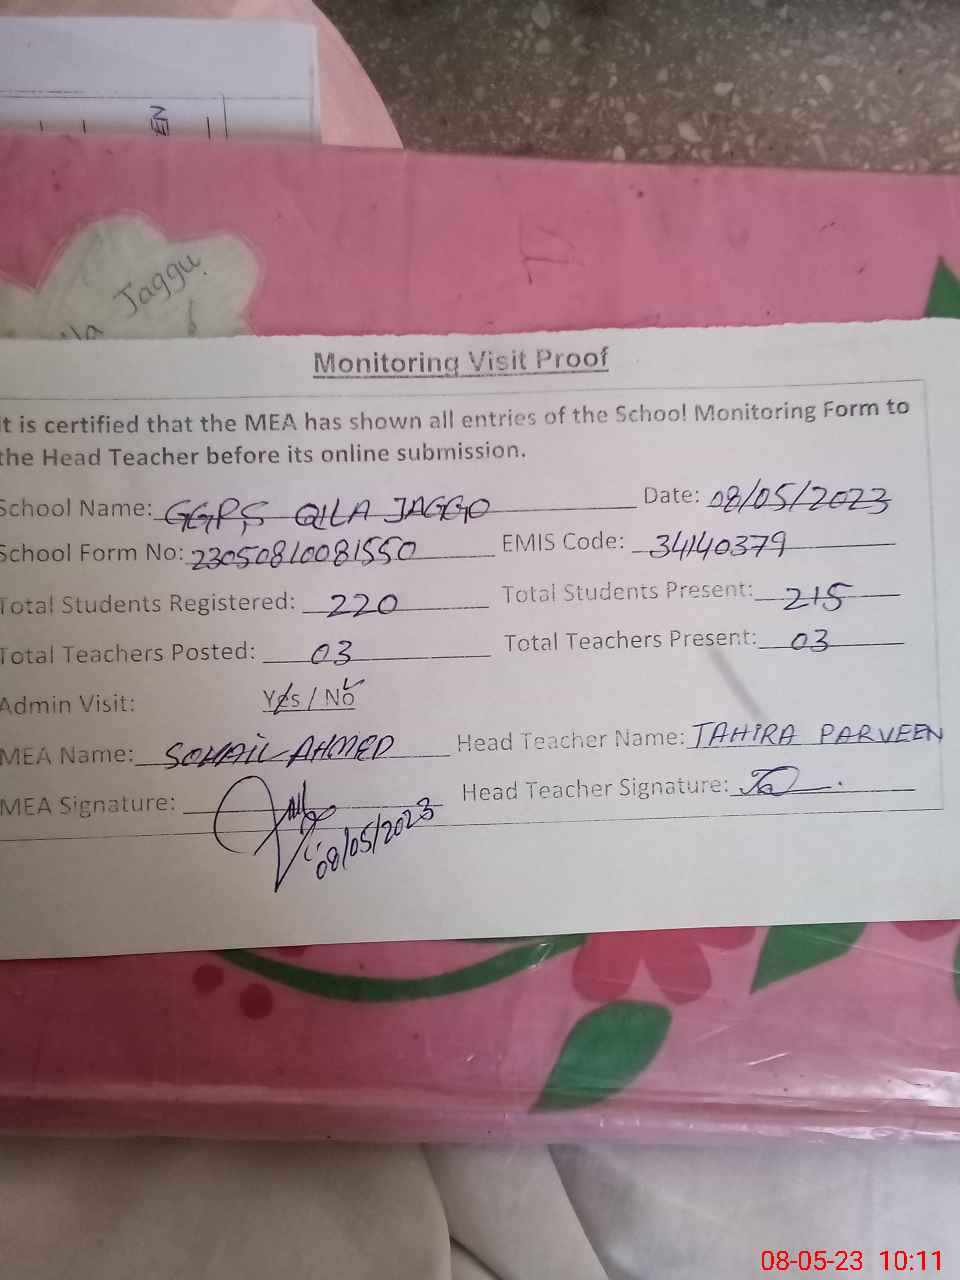 EN
lla Jaggu
Monitoring Visit Proof
It is certified that the MEA has shown all entries of the School Monitoring Form to
the Head Teacher before its online submission.
School Name: GGPS QILA JAGGO Date: 08/05/2023
School Form No: 23050810081550 EMIS Code: 34140379
Total Students Registered: 220 Total Students Present: 215
Total Teachers Posted: 03 Total Teachers Present: 03
Admin Visit: Yes / No
MEA Name: SOHAIL AHMED Head Teacher Name: TAHIRA PARVEEN
MEA Signature: Head Teacher Signature:
08/05/2023
08-05-23 10:11